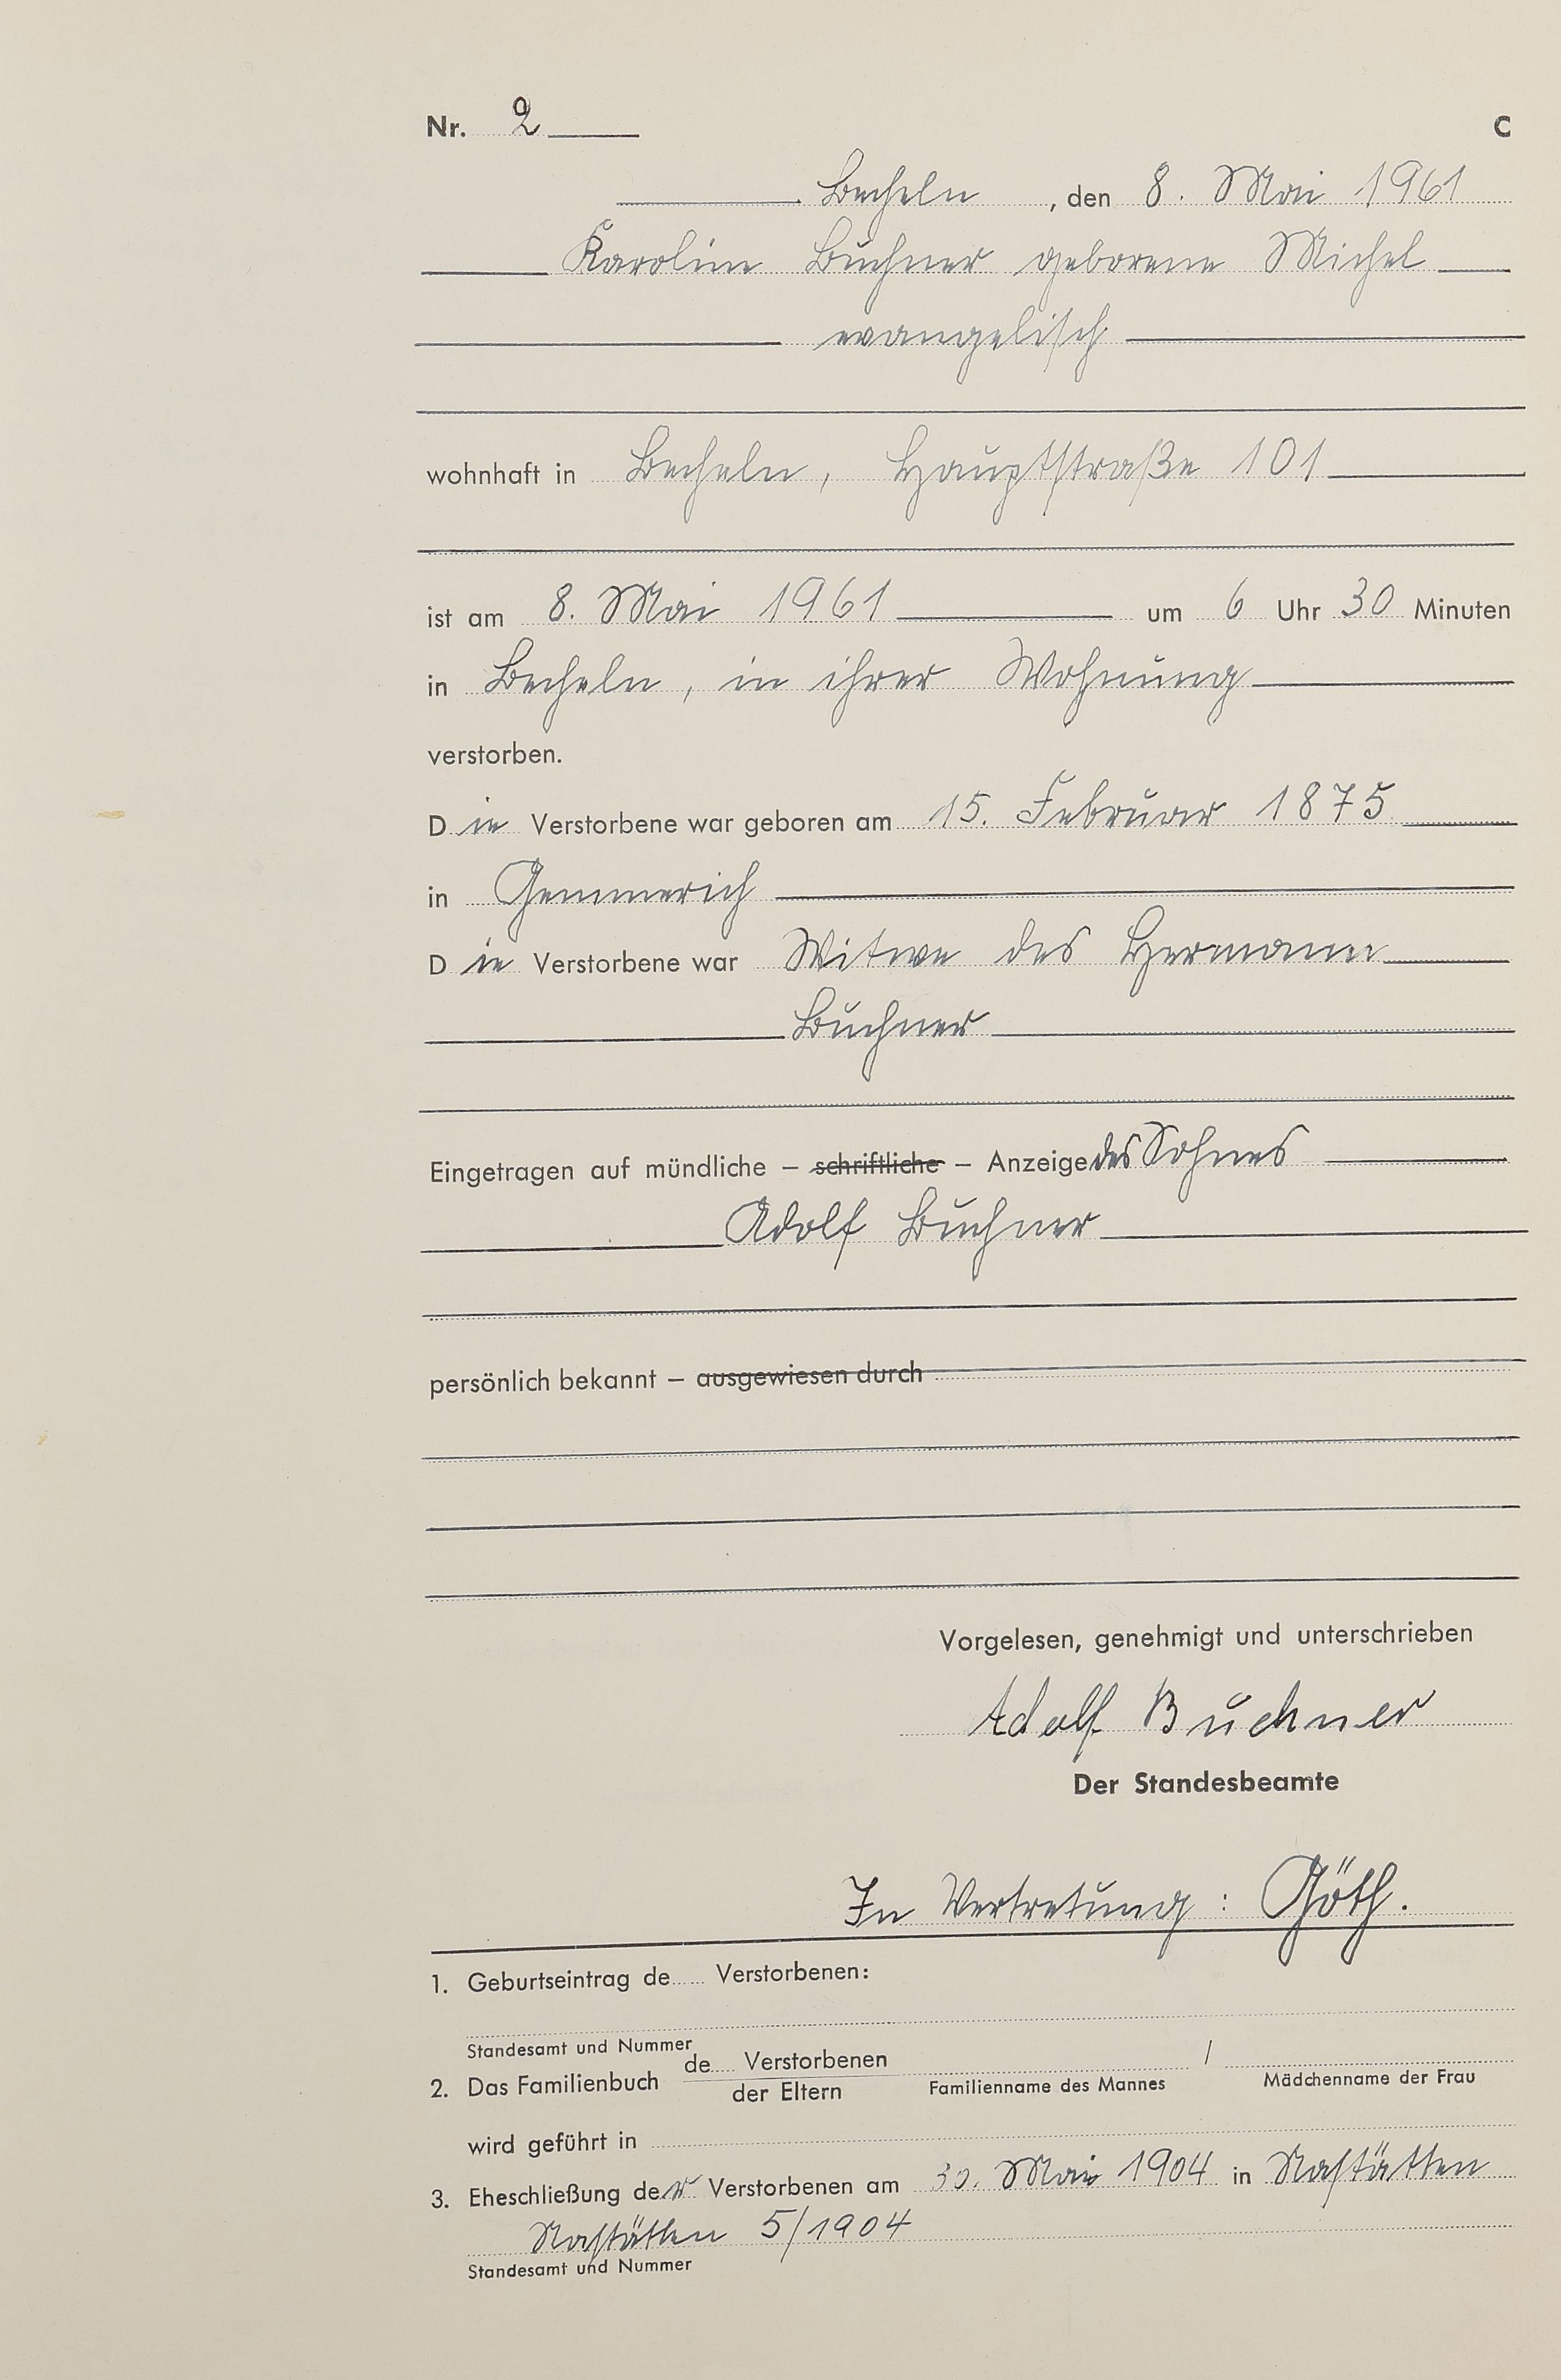 Nr. 2 C
Becheln, den 8. Mai 1961
Karoline Buchner geborene Michel
evangelisch
wohnhaft in Becheln, Hauptstraße 101
ist am 8. Mai 1961 um 6 Uhr 30 Minuten
in Becheln, in ihrer Wohnung
verstorben.
Die Verstorbene war geboren am 15. Februar 1875
in Gemmerich
Die Verstorbene war Witwe des Hermann
Buchner
Eingetragen auf mündliche – schriftliche – Anzeige des Sohnes
Adolf Buchner
persönlich bekannt – ausgewiesen durch
Vorgelesen, genehmigt und unterschrieben
Adolf Buchner
Der Standesbeamte
In Vertretung: Göth.
1. Geburtseintrag de Verstorbenen:
Standesamt und Nummer
2. Das Familienbuch de Verstorbenen /
der Eltern Familienname des Mannes Mädchenname der Frau
wird geführt in
3. Eheschließung der Verstorbenen am 30. Mai 1904 in Nastätten
Nastätten 5/1904
Standesamt und Nummer